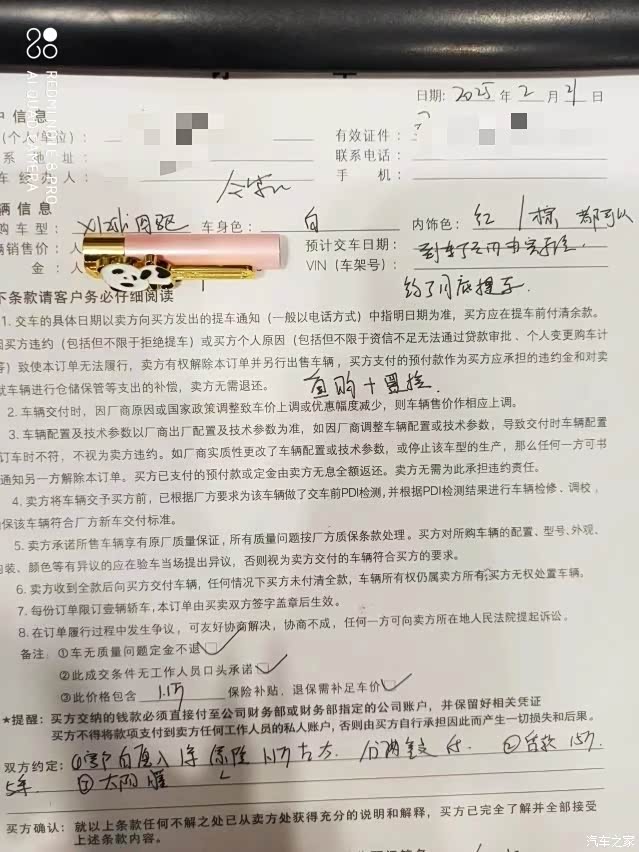 REDMI NOTE 8 PRO
AI QUAD CAMERA
日期: 2025 年 2 月 21 日
户信息
(个人/单位):
有效证件:
系 地 址:
联系电话:
车经办人:
手 机:
辆信息
购车型: 四驱 车身色: 白 内饰色: 红 / 棕 都可以
辆销售价: 人
预计交车日期:
金: 人
VIN(车架号):
约3月底提车
下条款请客户务必仔细阅读
1. 交车的具体日期以卖方向买方发出的提车通知(一般以电话方式)中指明日期为准,买方应在提车前付清余款。
因买方违约(包括但不限于拒绝提车)或买方个人原因(包括但不限于资信不足无法通过贷款审批、个人变更购车计
等)致使本订单无法履行,卖方有权解除本订单并另行出售车辆,买方支付的预付款作为买方应承担的违约金和对卖
就车辆进行仓储保管等支出的补偿,卖方无需退还。
直购+置换.
2. 车辆交付时,因厂商原因或国家政策调整致车价上调或优惠幅度减少,则车辆售价作相应上调。
3. 车辆配置及技术参数以厂商出厂配置及技术参数为准,如因厂商调整车辆配置或技术参数,导致交付时车辆配置
订车时不符,不视为卖方违约。如厂商实质性更改了车辆配置或技术参数,或停止该车型的生产,那么任何一方可书
通知另一方解除本订单。买方已支付的预付款或定金由卖方无息全额返还。卖方无需为此承担违约责任。
4. 卖方将车辆交予买方前,已根据厂方要求为该车辆做了交车前PDI检测,并根据PDI检测结果进行车辆检修、调校,
保该车辆符合厂方新车交付标准。
5. 卖方承诺所售车辆享有原厂质量保证,所有质量问题按厂方质保条款处理。买方对所购车辆的配置、型号、外观、
装、颜色等有异议的应在验车当场提出异议,否则视为卖方交付的车辆符合买方的要求。
6. 卖方收到全款后向买方交付车辆,任何情况下买方未付清全款,车辆所有权仍属卖方所有,买方无权处置车辆。
7. 每份订单限订壹辆轿车,本订单由买卖双方签字盖章后生效。
8. 在订单履行过程中发生争议,可友好协商解决,协商不成,任何一方可向卖方所在地人民法院提起诉讼。
备注: ①车无质量问题定金不退□
②此成交条件无工作人员口头承诺□
③此价格包含 1.1万 保险补贴,退保需补足车价□
★提醒:买方交纳的钱款必须直接付至公司财务部或财务部指定的公司账户,并保留好相关凭证
买方不得将款项支付到卖方任何工作人员的私人账户,否则由买方自行承担因此而产生一切损失和后果。
双方约定: ② 贷款 15万
5年 ③ 太阳膜
买方确认:就以上条款任何不解之处已从卖方处获得充分的说明和解释,买方已完全了解并全部接受
上述条款内容。
汽车之家